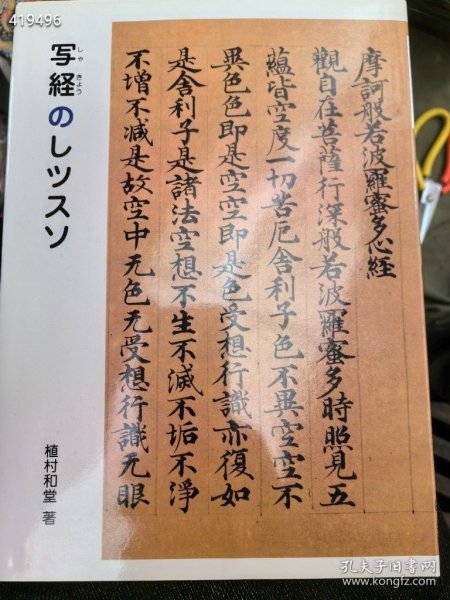 419496
写経のレッスン
しゃきょう
植村和堂 著
摩訶般若波羅蜜多心経
觀自在菩薩行深般若波羅蜜多時照見五
蘊皆空度一切苦厄舎利子色不異空空不
異色色即是空空即是色受想行識亦復如
是舎利子是諸法空想不生不滅不垢不浄
不增不減是故空中无色无受想行識无眼
孔夫子旧书网
www.kongfz.com